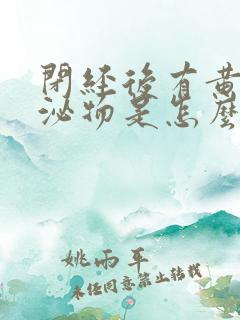 閉經後有黄
泌物是怎麼
姚雨平
未任同意禁止转载